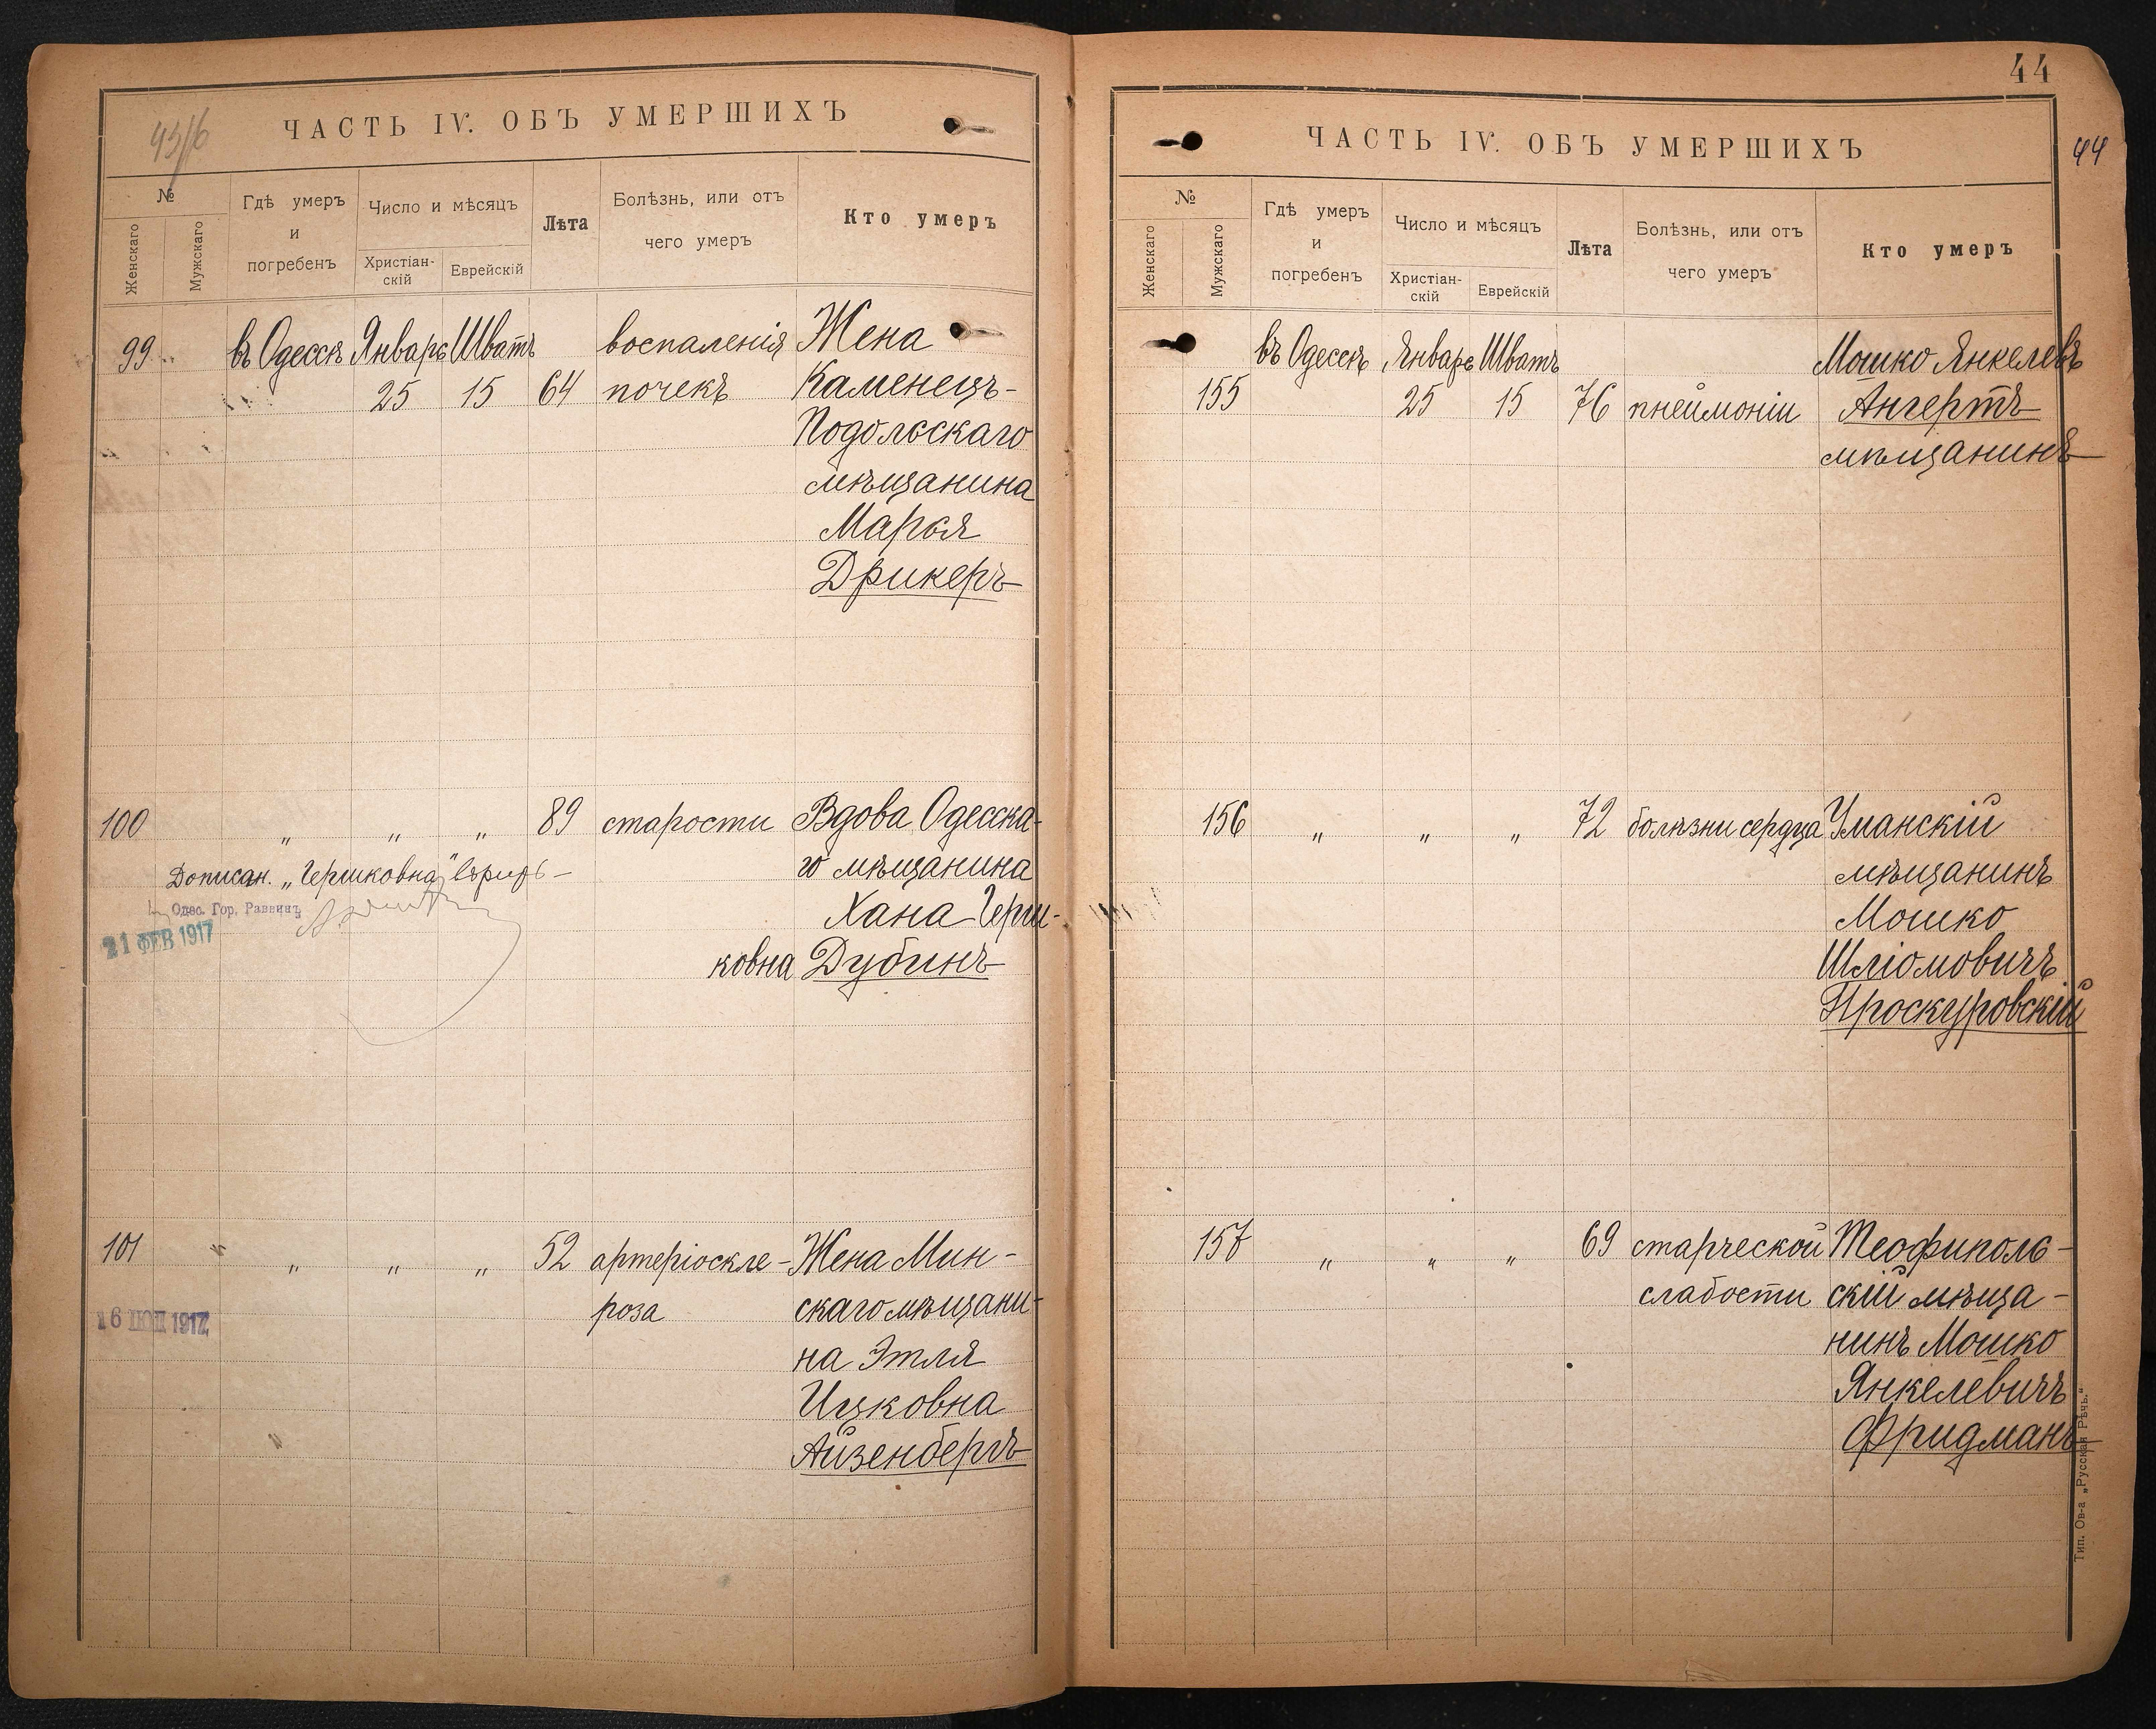 43/16
ЧАСТЬ IV. ОБЪ УМЕРШИХЪ
№
Женскаго
Мужскаго
Гдѣ умеръ
и
погребенъ
Число и мѣсяцъ
Христіан-
скій
Еврейскій
Лѣта
Болѣзнь, или отъ
чего умеръ
Кто умеръ
99 въ Одессѣ Январь Шватъ воспаленія Жена
25 15 64 почекъ Каменецъ-
Подольскаго
мѣщанина
Марья
Дрикеръ
100 „ „ „ 89 старости Вдова Одесска-
го мѣщанина
Хана Герш-
ковна Дубинъ
Дописан. „Гершковна“ вѣрить —
Одес. Гор. Раввинъ
21 ФЕВ 1917
101 „ „ „ 52 артеріоскле- Жена Мин-
роза скаго мѣщани-
16 1917
на Этля
Ицковна
Айзенбергъ
44
44
ЧАСТЬ IV. ОБЪ УМЕРШИХЪ
№
Женскаго
Мужскаго
Гдѣ умеръ
и
погребенъ
Число и мѣсяцъ
Христіан-
скій
Еврейскій
Лѣта
Болѣзнь, или отъ
чего умеръ
Кто умеръ
въ Одессѣ Январь Шватъ Мошко Янкелевъ
155 25 15 76 пнеймоніи Ангертъ
мѣщанинъ
156 „ „ „ 72 болѣзни сердца Уманскій
мѣщанинъ
Мошко
Шліомовичъ
Проскуровскій
157 „ „ „ 69 старческой Теофиполь-
слабости скій мѣща-
нинъ Мошко
Янкелевичъ
Фридманъ
Тип. Ов-а „Русская Рѣчь.“